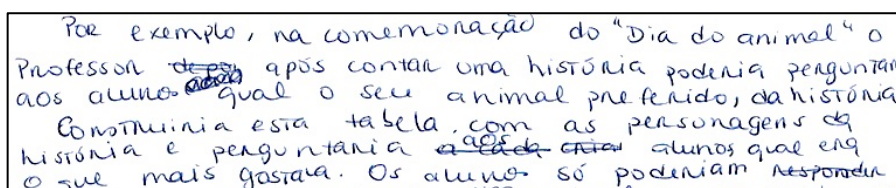 Por exemplo, na comemoração do "Dia do animal" o
Professor após contar uma história poderia perguntar
aos aluno qual o seu animal preferido, da história
Construiria esta tabela, com as personagens da
história e perguntaria aos alunos qual era
o que mais gostava. Os aluno só poderiam responder